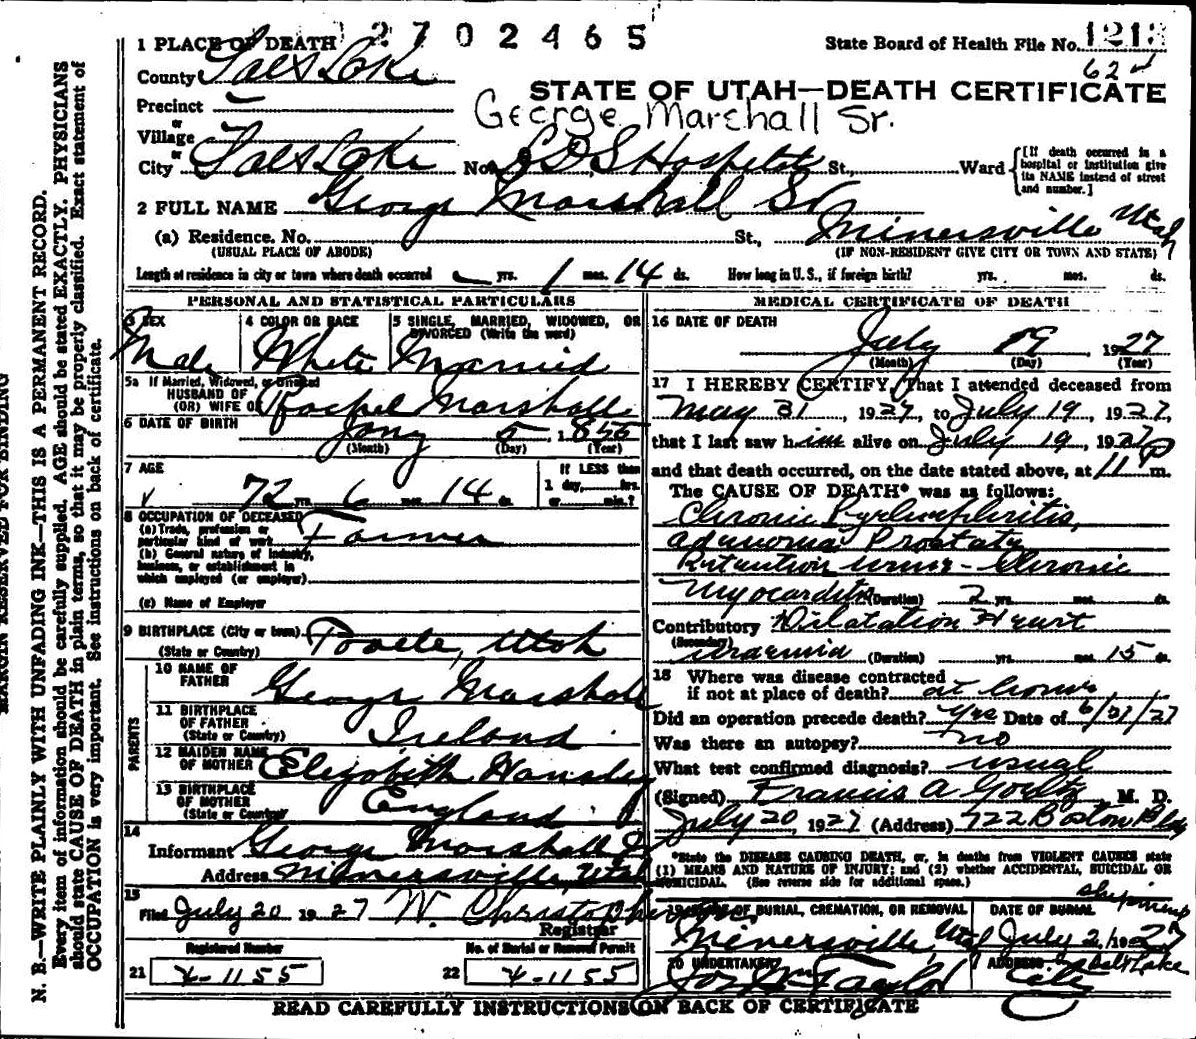 1 PLACE OF DEATH 2702465
State Board of Health File No. 1213
County Salt Lake
624
STATE OF UTAH—DEATH CERTIFICATE
Precinct
or
George Marshall Sr.
Village
or
City Salt Lake No. L D S Hospital St., Ward
[If death occurred in a hospital or institution give its NAME instead of street and number.]
2 FULL NAME George Marshall Sr
(a) Residence. No. St., Minersville Utah
(USUAL PLACE OF ABODE) (IF NON-RESIDENT GIVE CITY OR TOWN AND STATE)
Length of residence in city or town where death occurred yrs. 1 mos. 14 ds. How long in U. S., if foreign birth? yrs. mos. ds.
PERSONAL AND STATISTICAL PARTICULARS
3 SEX
Male
4 COLOR OR RACE
White
5 SINGLE, MARRIED, WIDOWED, OR DIVORCED (Write the word)
Married
5a If Married, Widowed, or Divorced
HUSBAND OF
(OR) WIFE OF Rachel Marshall
6 DATE OF BIRTH Jany 5, 1855
(Month) (Day) (Year)
7 AGE
72 yrs. 6 mos. 14 ds.
If LESS than
1 day, hrs.
or min.?
8 OCCUPATION OF DECEASED
(a) Trade, profession or
particular kind of work Farmer
(b) General nature of industry,
business, or establishment in
which employed (or employer)
(c) Name of Employer
9 BIRTHPLACE (City or town) Tooele, Utah
(State or Country)
PARENTS
10 NAME OF
FATHER George Marshall
11 BIRTHPLACE
OF FATHER
(State or Country) Ireland
12 MAIDEN NAME
OF MOTHER Elizabeth
13 BIRTHPLACE
OF MOTHER
(State or Country) England
14
Informant George Marshall Jr
Address Minersville, Utah
15
Filed July 20 1927 W. Christopherson
Registrar
Registered Number
21 X-1155
No. of Burial or Removal Permit
22 X-1155
MEDICAL CERTIFICATE OF DEATH
16 DATE OF DEATH
July 19, 1927
(Month) (Day) (Year)
17 I HEREBY CERTIFY, That I attended deceased from
May 31, 1927, to July 19, 1927,
that I last saw him alive on July 19, 1927
and that death occurred, on the date stated above, at 11 p m.
The CAUSE OF DEATH* was as follows:
Chronic Pyelonephritis,
adenoma Prostate
Retention urine - Chronic
Myocarditis (Duration) 2 yrs. mos. ds.
Contributory Dilatation Heart
(Secondary)
uraemia (Duration) yrs. mos. 15 ds.
18 Where was disease contracted
if not at place of death? at home
Did an operation precede death? Yes Date of 6/21/27
Was there an autopsy? no
What test confirmed diagnosis? usual
(Signed) Francis A M. D.
July 20, 1927 (Address) 722 Boston Bldg
*State the DISEASE CAUSING DEATH, or, in deaths from VIOLENT CAUSES state
(1) MEANS AND NATURE OF INJURY; and (2) whether ACCIDENTAL, SUICIDAL OR
HOMICIDAL. (See reverse side for additional space.)
19 PLACE OF BURIAL, CREMATION, OR REMOVAL
Minersville, Utah
DATE OF BURIAL shipping
July 21 1927
20 UNDERTAKER
Jos Wm Taylor
ADDRESS Salt Lake
City
READ CAREFULLY INSTRUCTIONS ON BACK OF CERTIFICATE
N. B.—WRITE PLAINLY WITH UNFADING INK—THIS IS A PERMANENT RECORD.
Every item of information should be carefully supplied. AGE should be stated EXACTLY. PHYSICIANS
should state CAUSE OF DEATH in plain terms, so that it may be properly classified. Exact statement of
OCCUPATION is very important. See instructions on back of certificate.
MARGIN RESERVED FOR BINDING